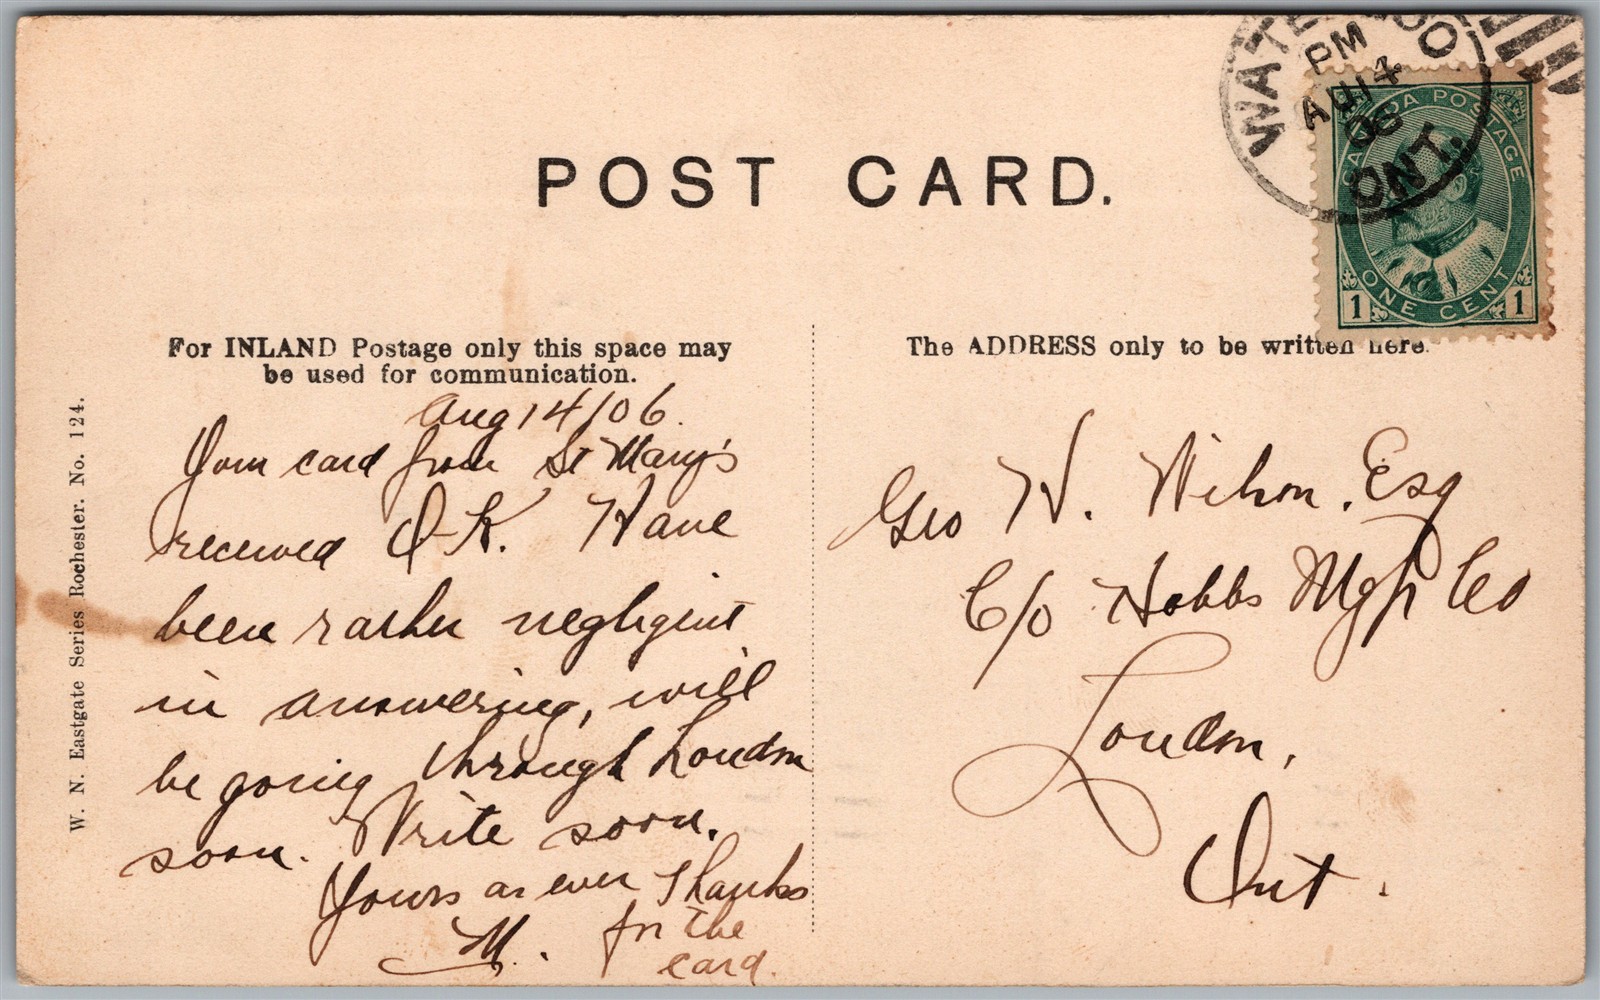 POST CARD.
WATERLOO
PM
AU 14
06
ONT.
CANADA POSTAGE
ONE CENT
1 1
For INLAND Postage only this space may
be used for communication.
Aug 14/06.
Your card from St Mary's
received O.K. Have
been rather neghgent
in answering, will
be going through London
soon. Write soon.
Yours as ever Thanks
M. for the
card.
The ADDRESS only to be written here.
Geo W. Wilson. Esq
C/o Hobbs Mgf Co
London,
Ont.
W. N. Eastgate Series Rochester. No. 124.